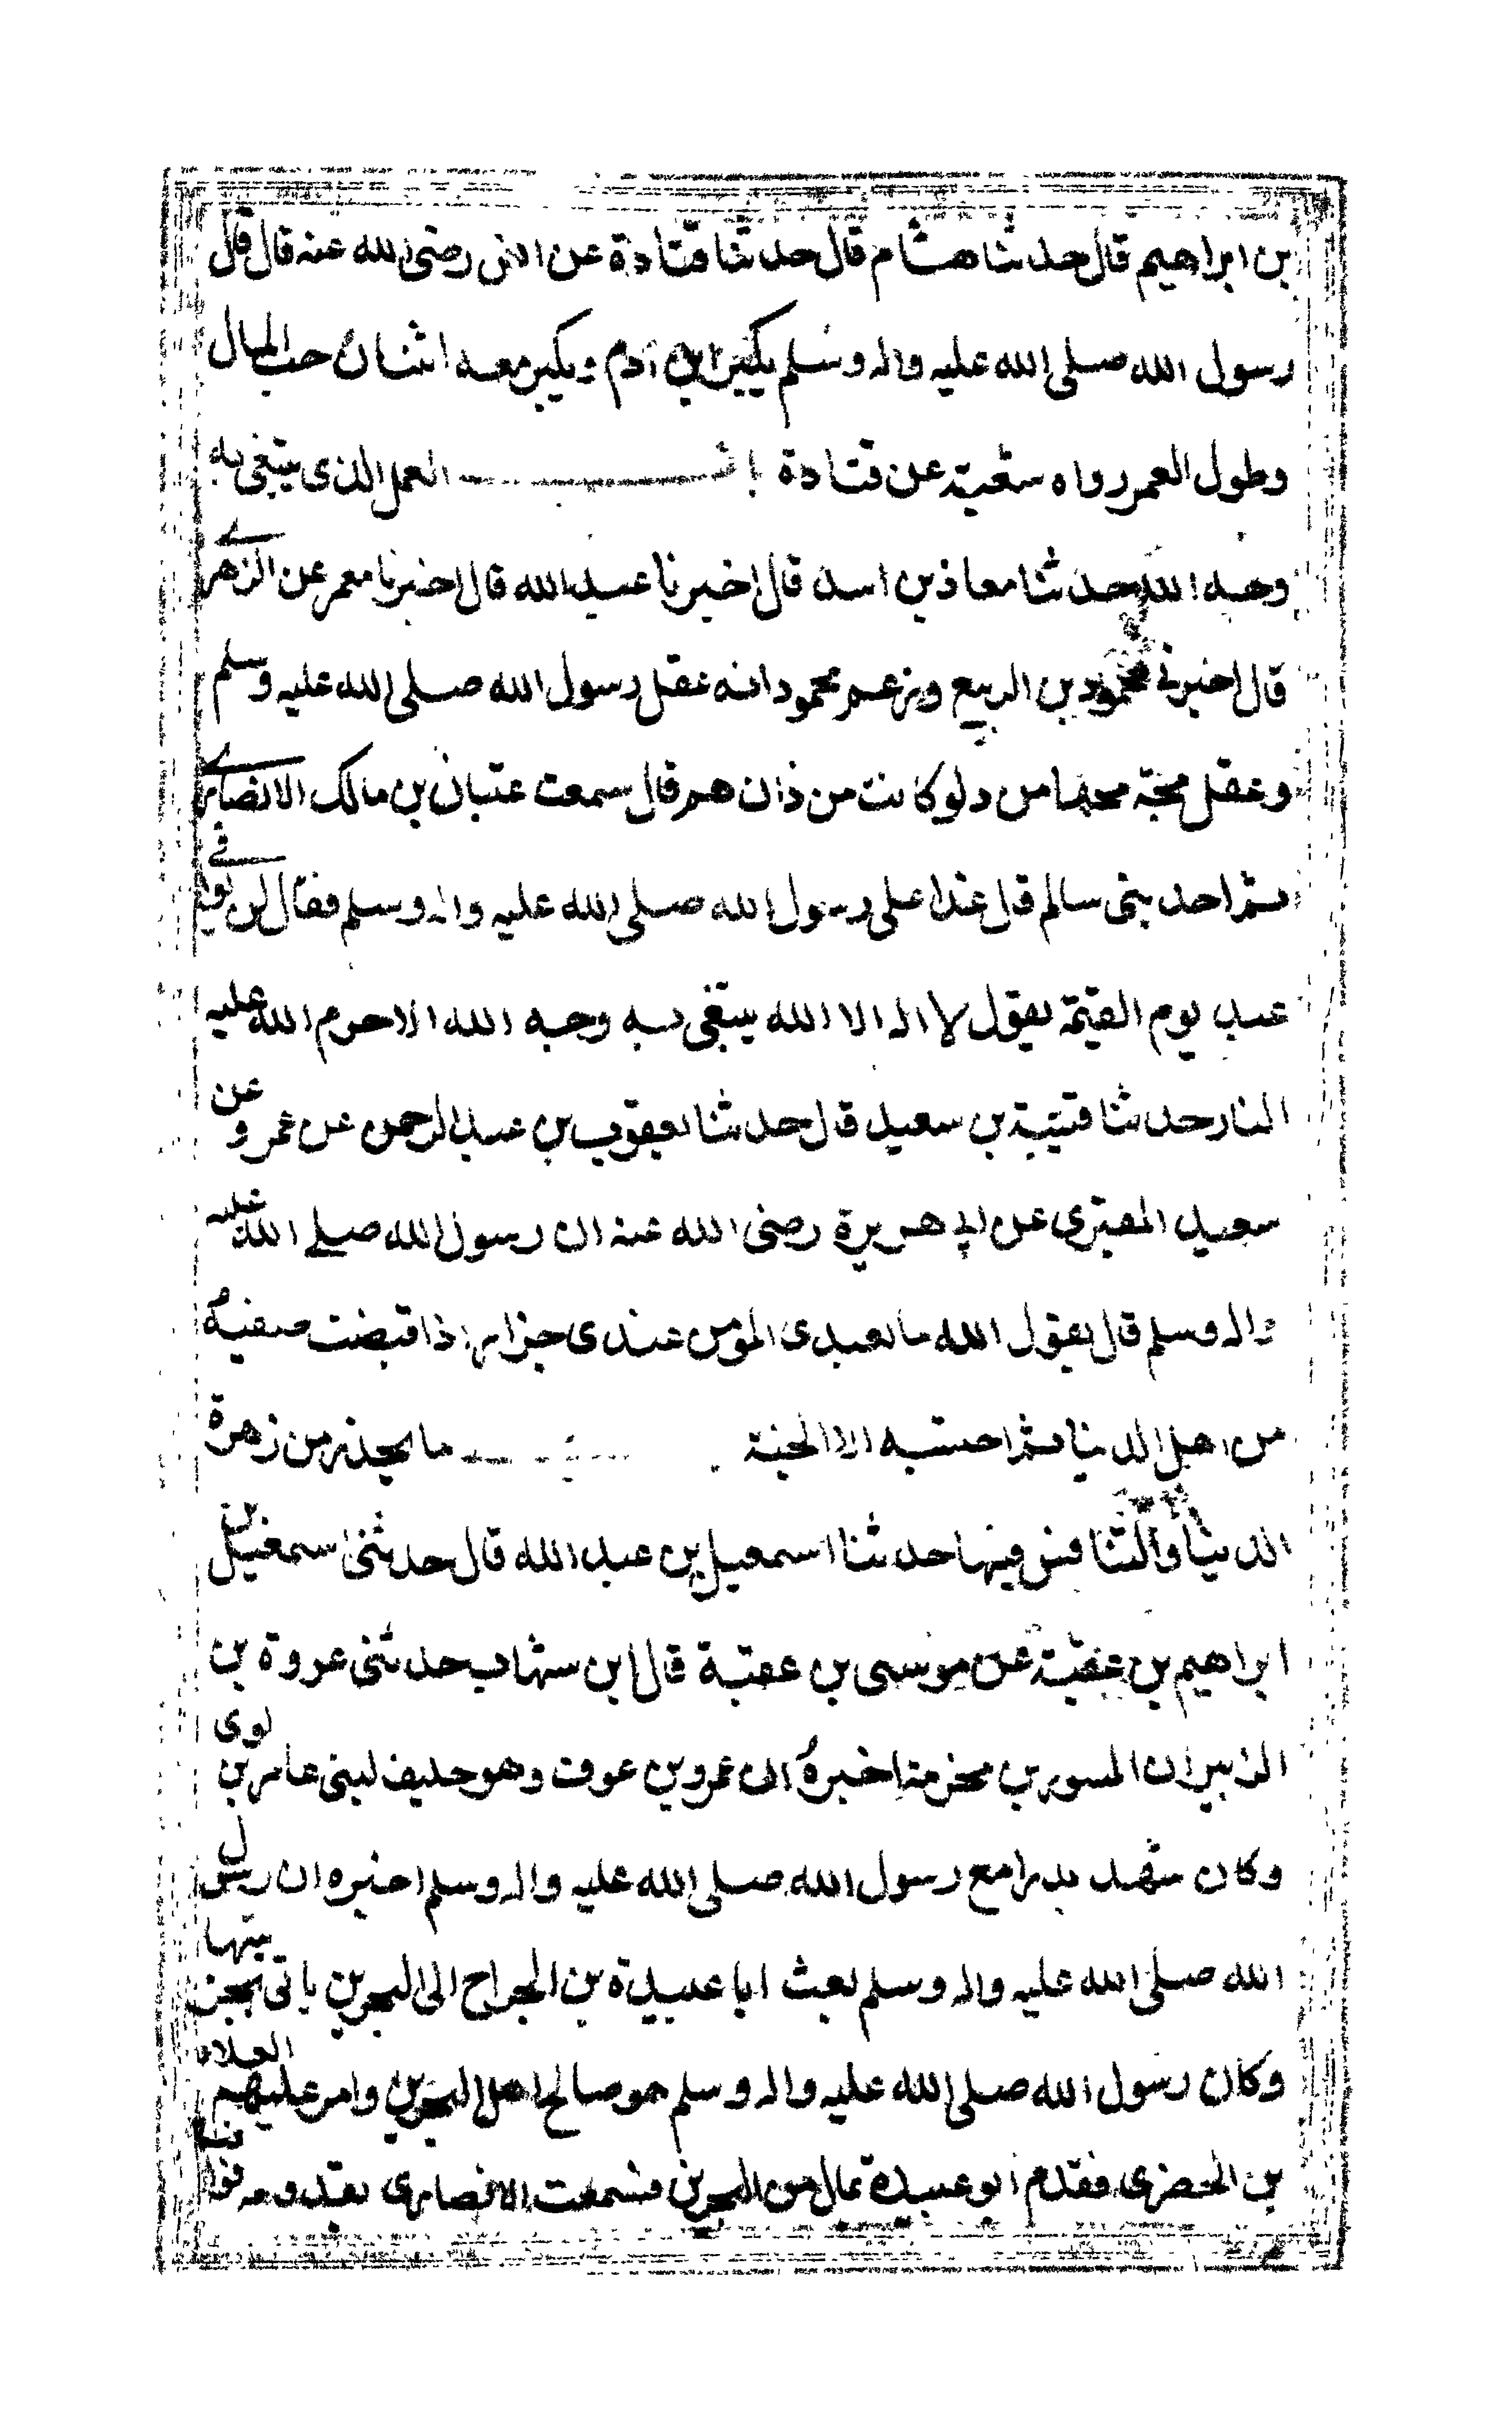 بن ابراهيم قال حدثنا هشام قال حدثنا قتادة عن انس رضى الله عنه قال قال
رسول الله صلى الله عليه واله وسلم يكبر ابن آدم ويكبر معه اثنان حب المال
وطول العمر رواه شعبة عن قتادة باب العمل الذى يبتغى به
وجه الله حدثنا معاذ بن اسد قال اخبرنا عبد الله قال اخبرنا معمر عن الزهرى
قال اخبرنى محمود بن الربيع وزعم محمود انه عقل رسول الله صلى الله عليه وسلم
وعقل مجة مجها من دلو كانت من دارهم قال سمعت عتبان بن مالك الانصارى
ثم احد بنى سالم قال غدا على رسول الله صلى الله عليه واله وسلم فقال لن يوافى
عبد يوم القيمة يقول لا اله الا الله يبتغى به وجه الله الا حرم الله عليه
النار حدثنا قتيبة بن سعيد قال حدثنا يعقوب بن عبد الرحمن عن عمرو عن
سعيد المقبرى عن ابى هريرة رضى الله عنه ان رسول الله صلى الله عليه
واله وسلم قال يقول الله ما لعبدى المؤمن عندى جزاء اذا قبضت صفيه
من اهل الدنيا ثم احتسبه الا الجنة ما يحذر من زهرة
الدنيا والتنافس فيها حدثنا اسمعيل بن عبد الله قال حدثنى اسمعيل بن
ابراهيم بن عقبة عن موسى بن عقبة قال ابن شهاب حدثنى عروة بن
الزبير ان المسور بن مخرمة اخبره ان عمرو بن عوف وهو حليف لبنى عامر بن لوى
وكان شهد بدرا مع رسول الله صلى الله عليه واله وسلم اخبره ان رسول
الله صلى الله عليه واله وسلم بعث ابا عبيدة بن الجراح الى البحرين ياتى بجزيتها
وكان رسول الله صلى الله عليه واله وسلم هو صالح اهل البحرين وامر عليهم العلاء
بن الحضرمى فقدم ابو عبيدة بمال من البحرين فسمعت الانصار بقدومه